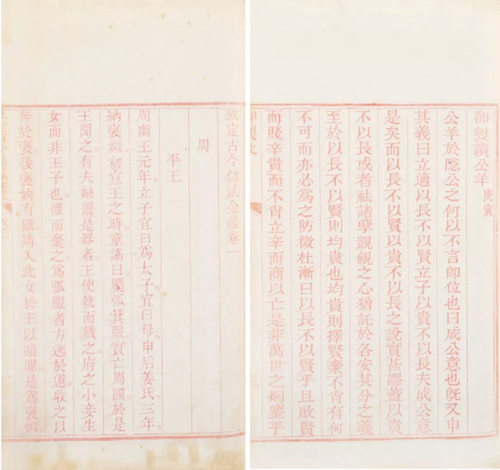 御製讀公羊 庚寅
公羊於隱公之何以不言即位也曰成公意也旣又申
其義曰立適以長不以賢立子以貴不以長夫成公意
是矣而以長不以賢以貴不以長之說實甚謬蓋以貴
不以長或者祛諸孽覬覦之心猶託於各安其分之義
至於以長不以賢則均貴也均貴則擇賢棄不肖有何
不可而亦必爲之防微杜漸曰以長不以賢乎且啟賢
而賤辛貴而不肖立辛而商以亡是非萬世之炯鑒乎
御製文
欽定古今儲貳金鑑卷一
周
平王
周幽王元年立子宜臼爲太子宜臼母申后姜氏三年
納襃姒初宣王之時童謠曰檿弧箕服實亡周國於是
王聞之有夫婦鬻是器者王使執而戮之府之小妾生
女而非王子也懼而棄之爲弧服者方逃於道收之以
奔於襃後襃姁有獄請入此女於王以贖罪是爲襃姒